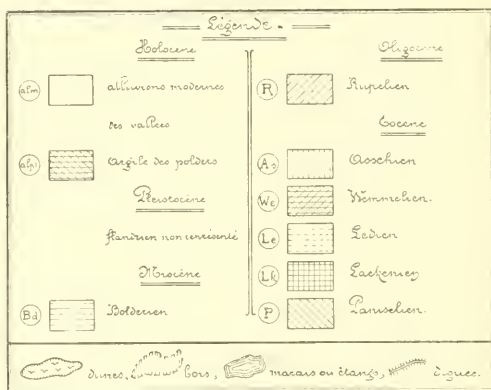 Légende.
Holocène
alm alluvions modernes
des vallées
alp1 Argile des polders
Pleistocène
flandrien non représenté
Miocène
Bd Bolderien
Oligocène
R Rupelien
Eocène
As Asschien
We Wemmelien.
Le Ledien
Lk Laekenien
P Panisélien.
dunes, bois, marais ou étangs, digues.